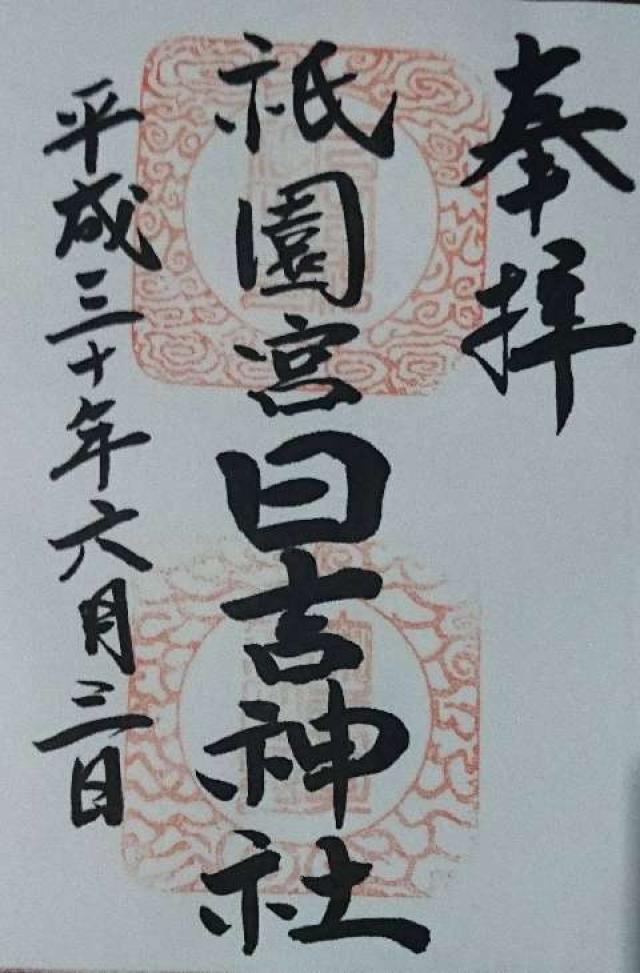 奉拝
祇園宮日吉神社
平成三十年六月三日